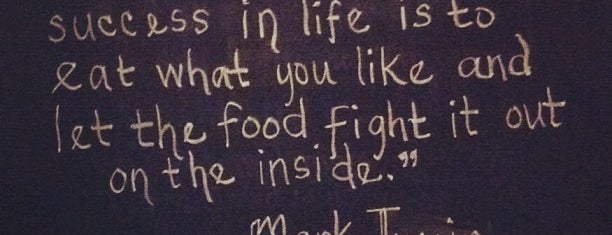 success in life is to
eat what you like and
let the food fight it out
on the inside."
Mark Twain